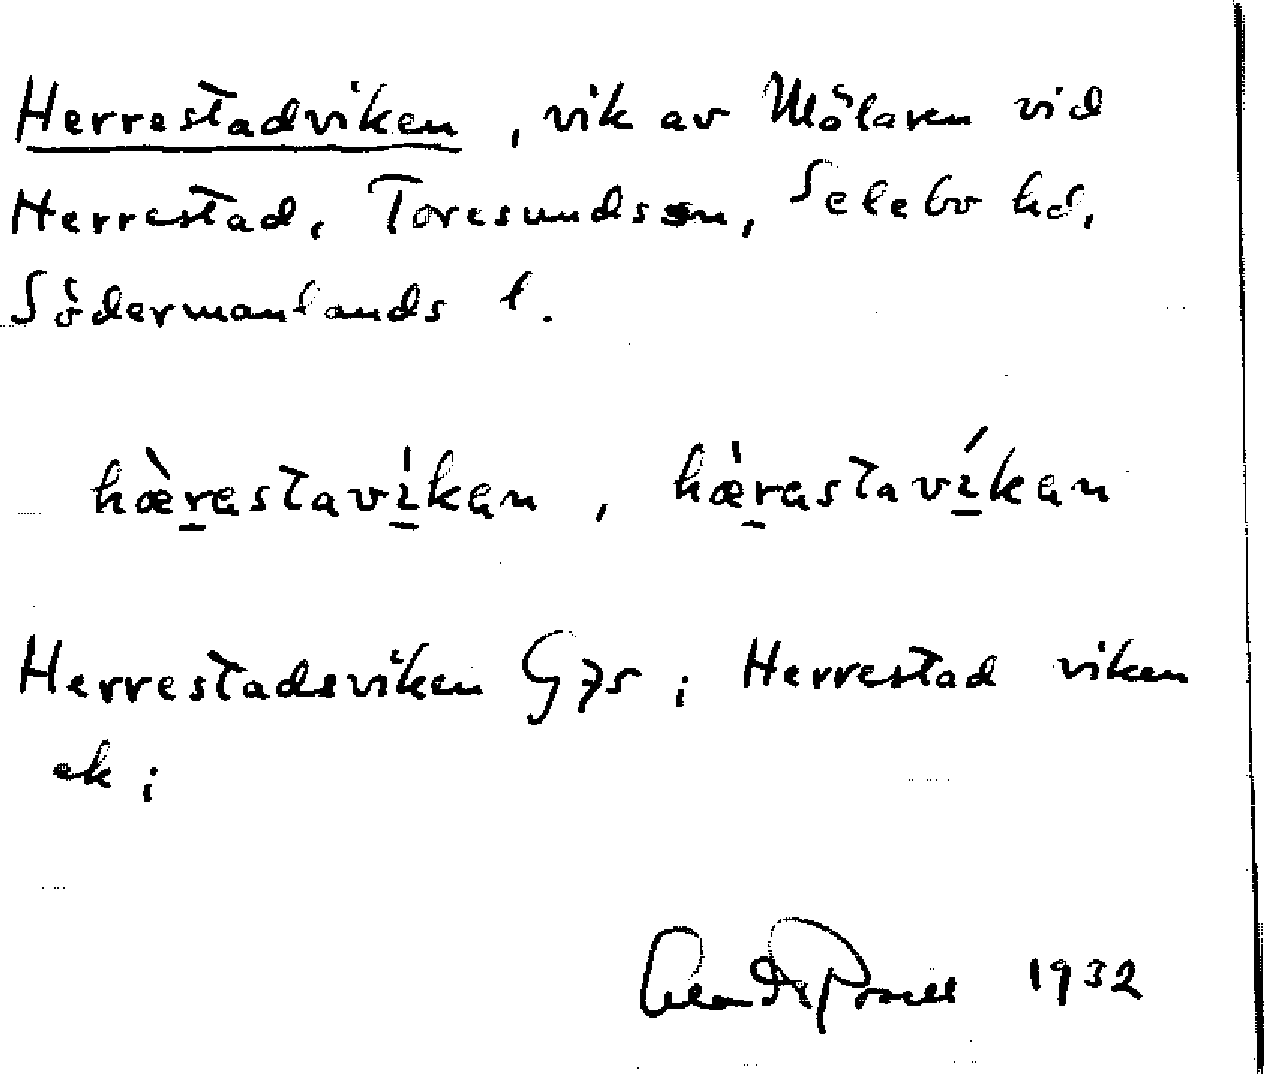 Herrestadviken, vik av Mälaren vid
Herrestad, Toresunds sn, Selebo hd,
Södermanlands l.
hæ̀rastavíkan, hæ̀rastavíkan
Herrestadsviken G75; Herrestad viken
ek;
1932